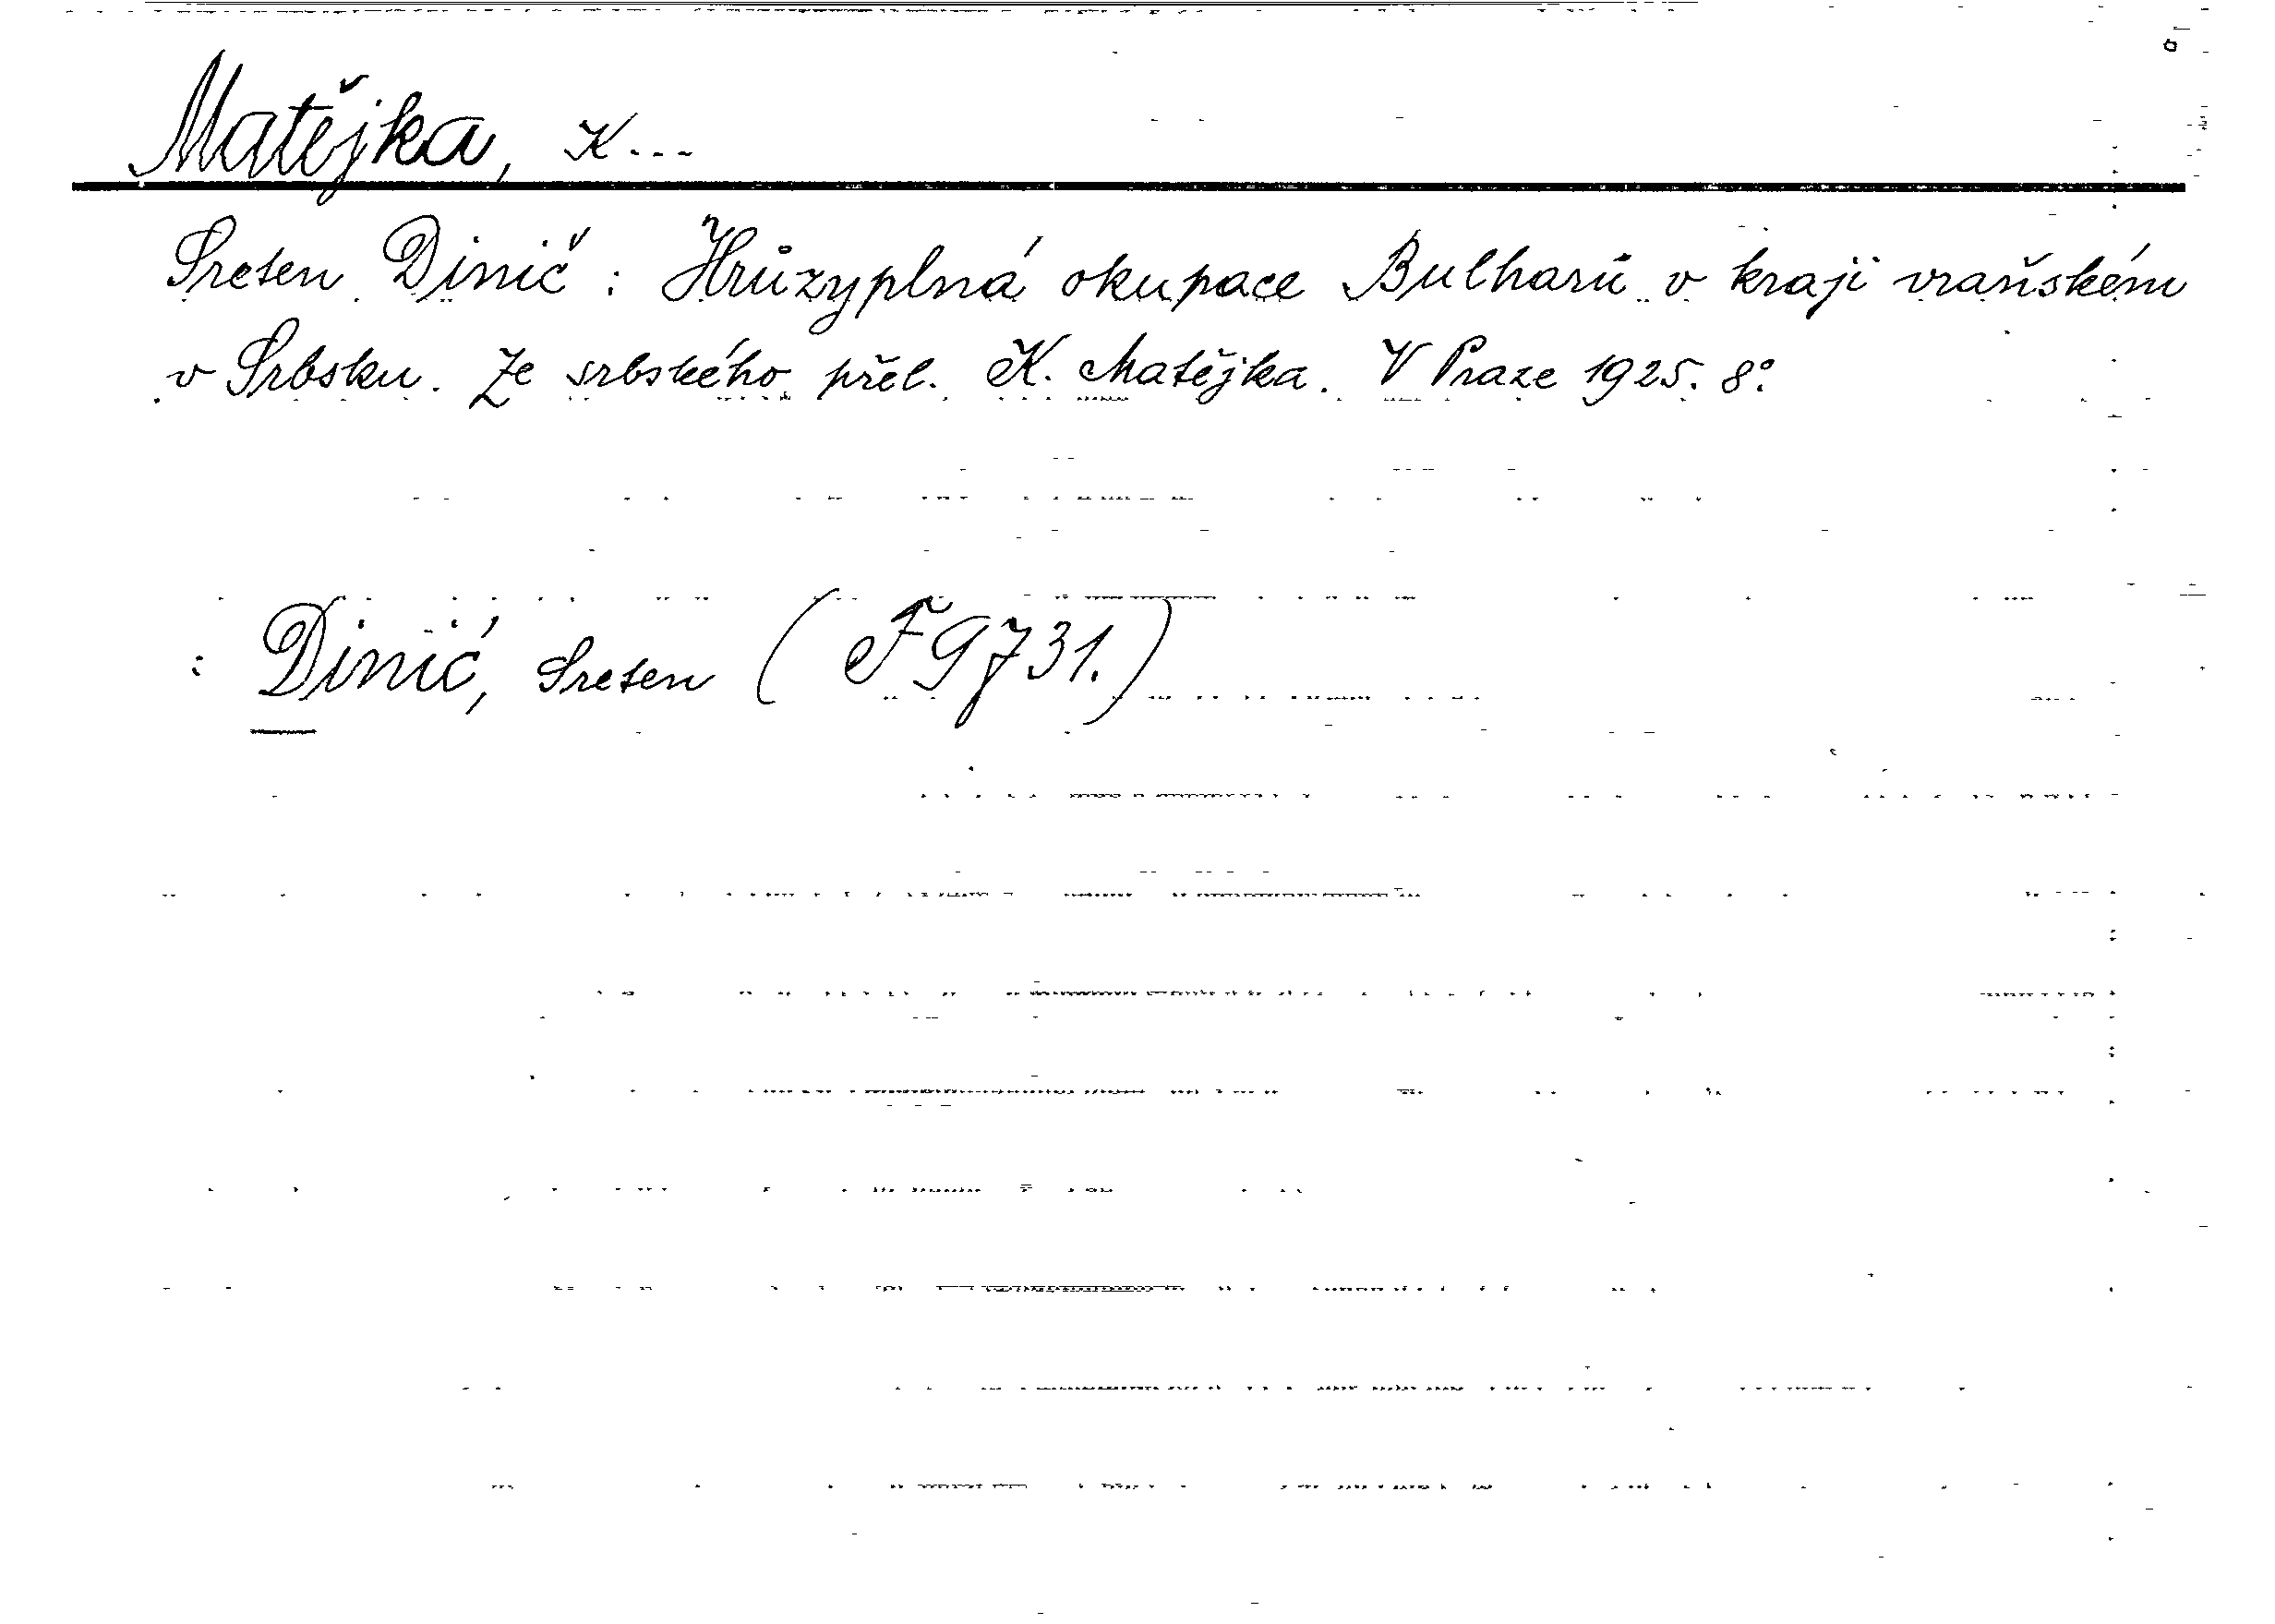 Matějka, K...
Sreten Dinič: Hrůzyplná okupace Bulharů v kraji vraňském
v Srbsku. Ze srbského přel. K. Matějka. V Praze 1925. 8°.
: Dinić, Sreten (F 9731.)